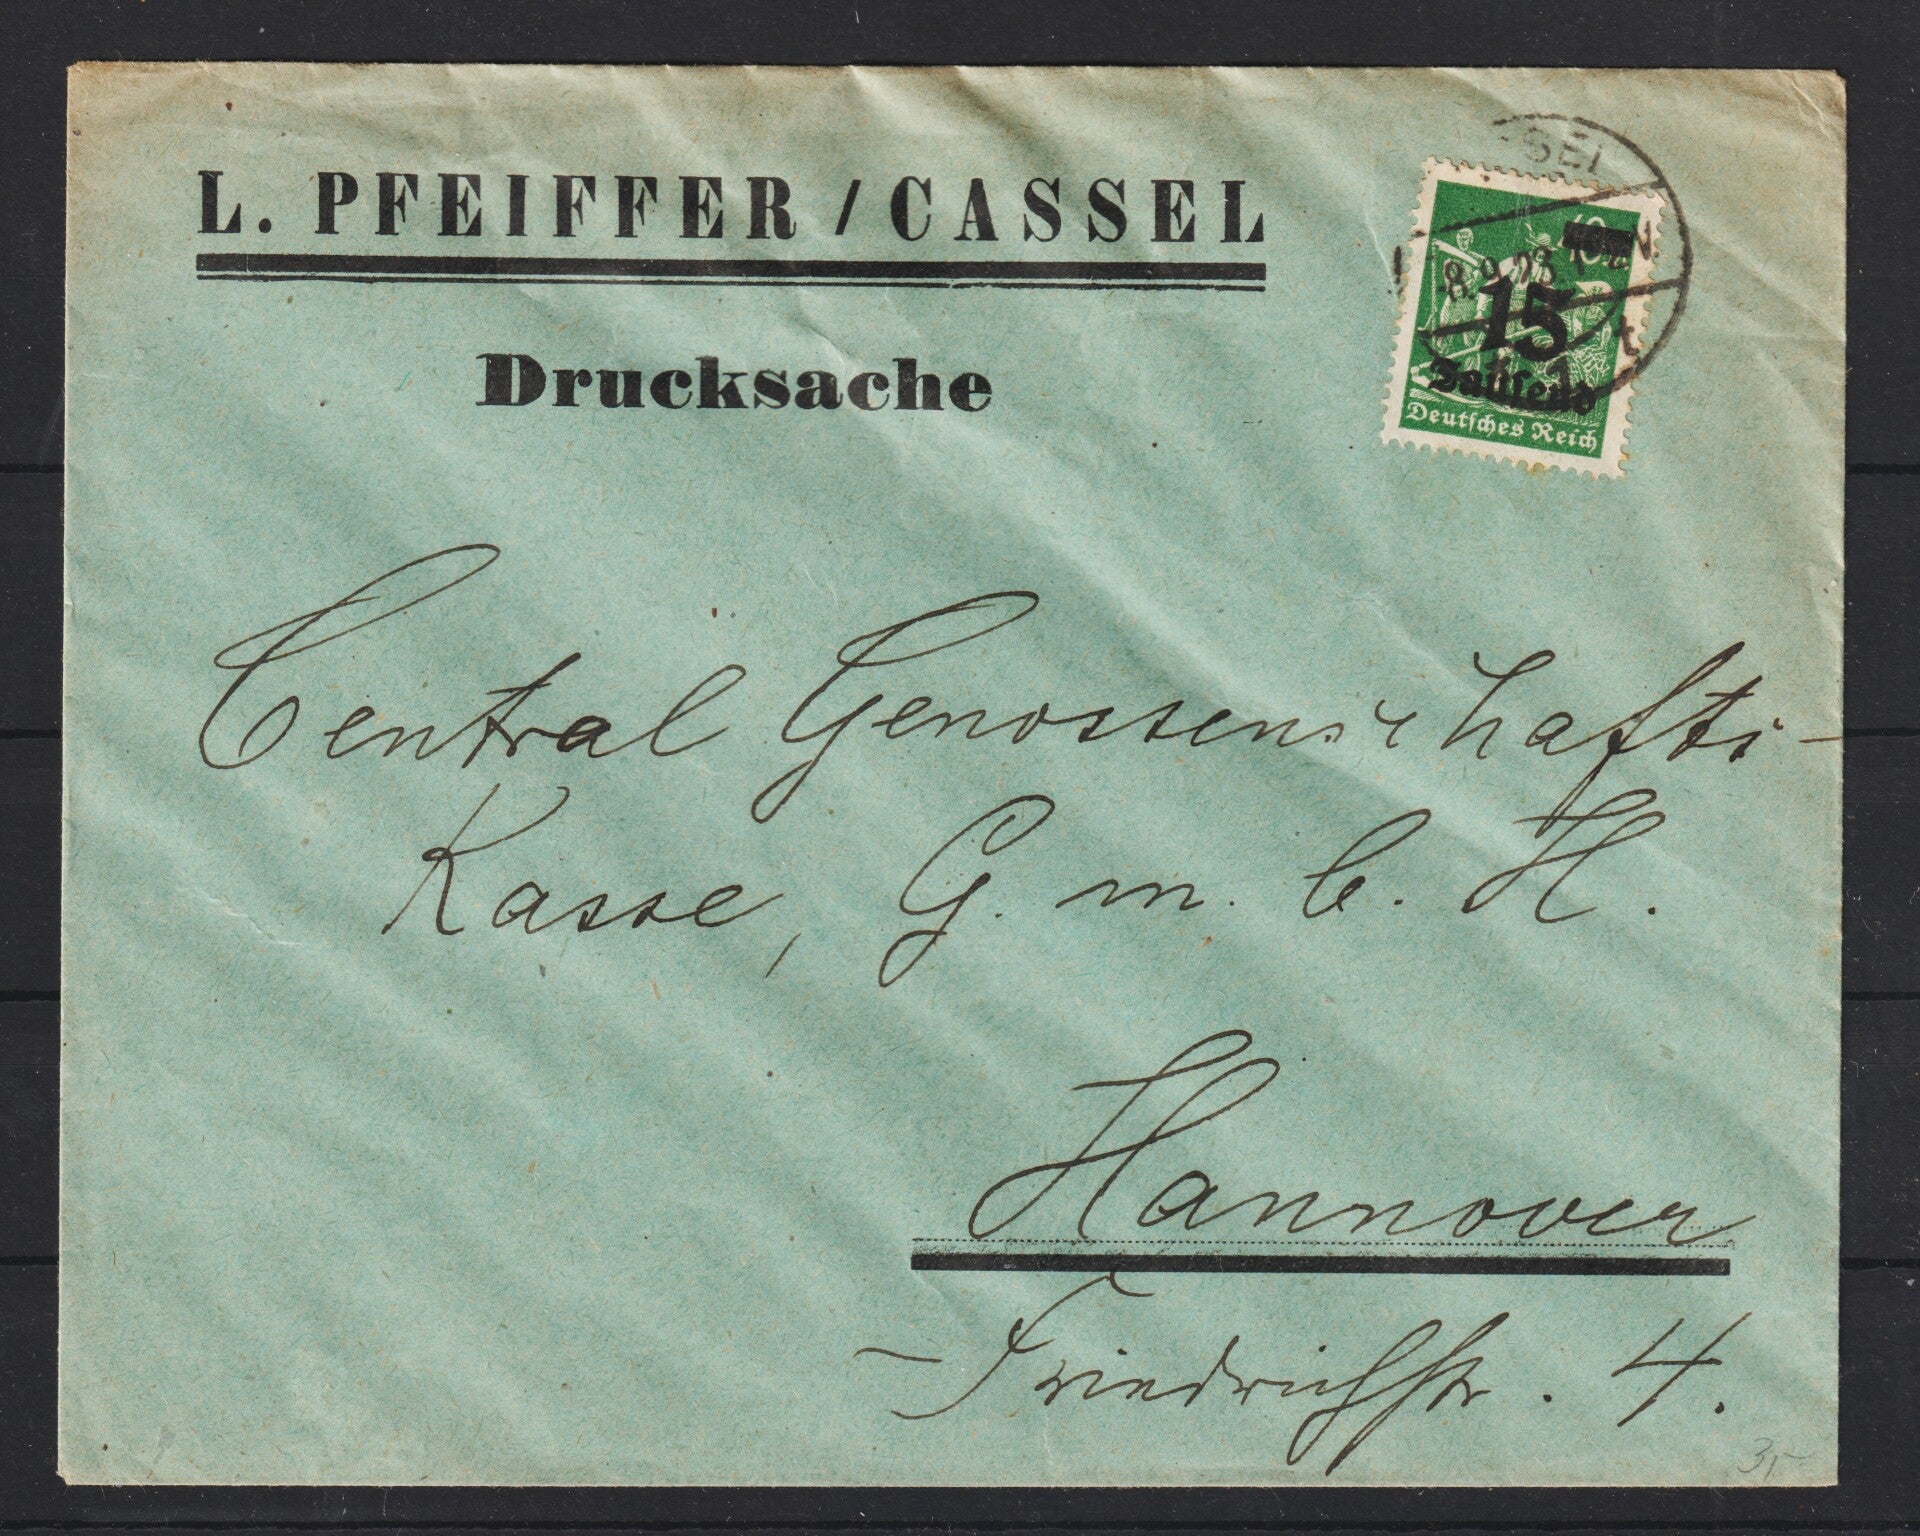 L. PFEIFFER / CASSEL
Drucksache
SEL
8.9.23.
t
40
15
Tausend
Deutsches Reich
Central Genossenschafts-
Kasse, G. m. b. H.
Hannover
Friedrichstr. 4.